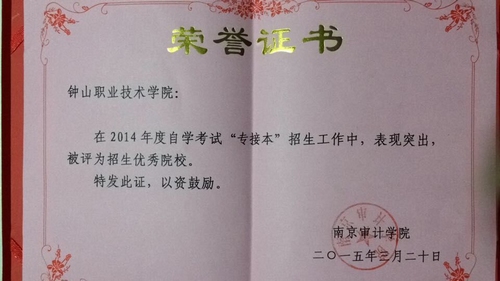 荣誉证书
钟山职业技术学院:
在2014年度自学考试“专接本”招生工作中,表现突出,
被评为招生优秀院校。
特发此证,以资鼓励。
南京审计学院
二〇一五年三月二十日